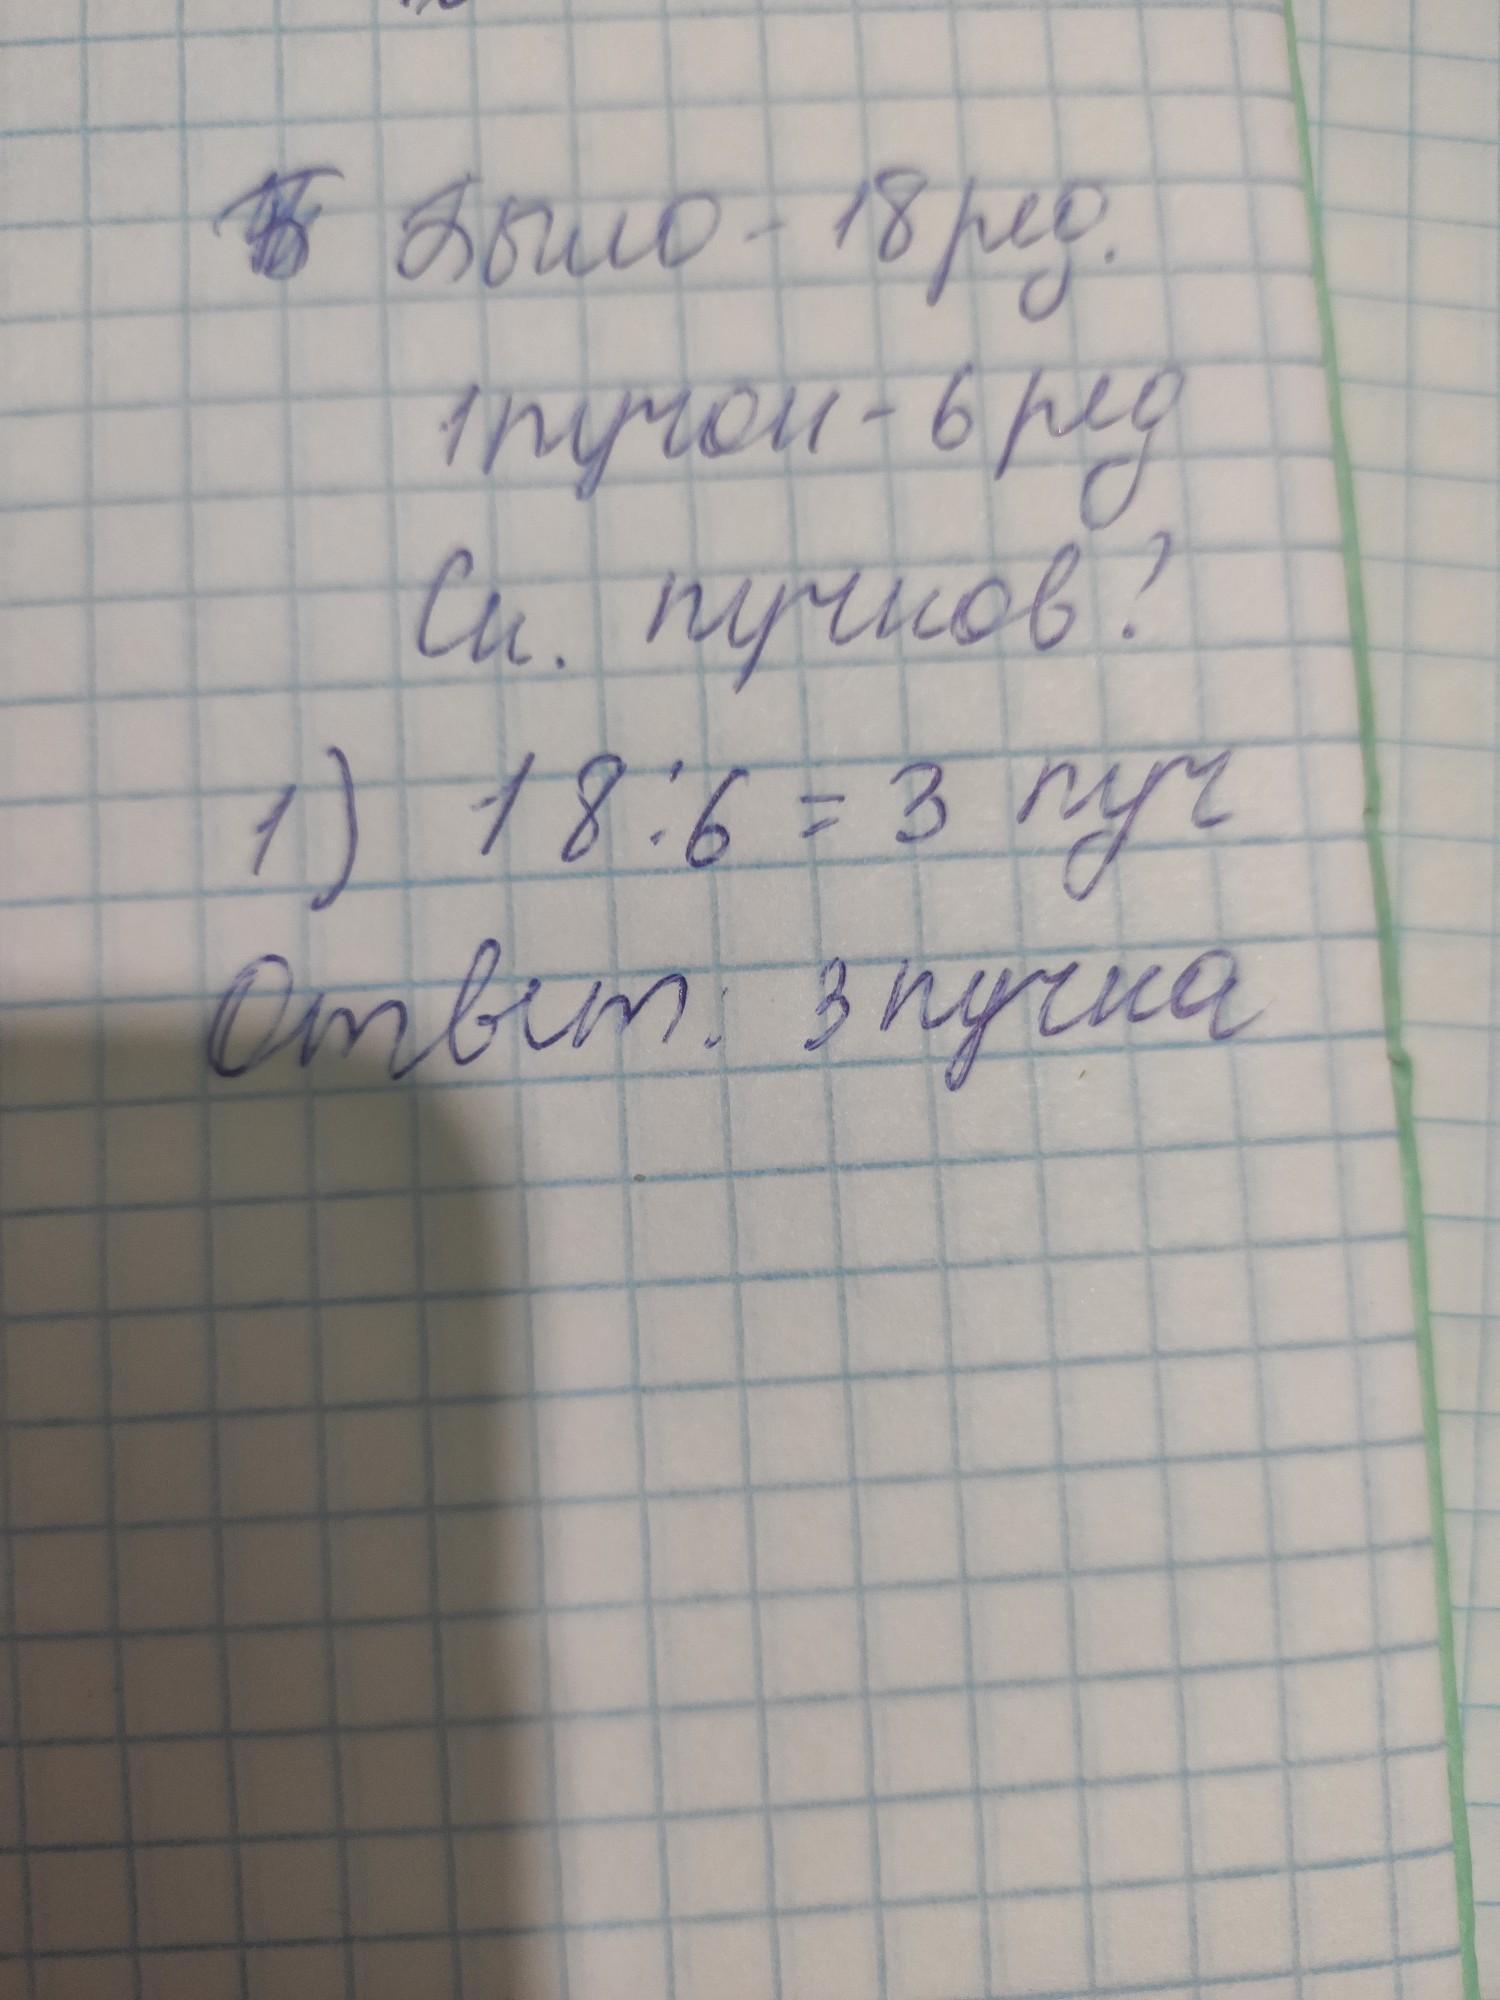 Было - 18 ред.
1 пучок - 6 ред
Ск. пучков?
1) 18:6 = 3 пуч
Ответ: 3 пучка